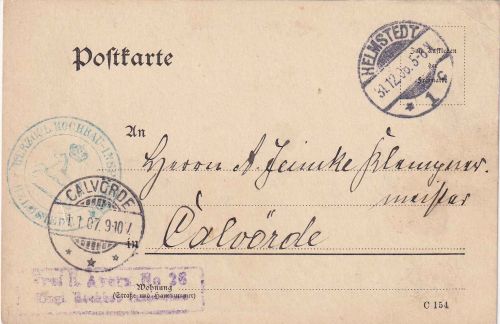 Postkarte
Zum Aufkleben
der
Freimarke
HELMSTEDT
31.12.06. 5-6 N.
* 1 c
HERZOGL. HOCHBAU-INSP
An
CALVÖRDE
1.1.07. 9-10 V.
* * *
Herrn A. Heineke Klempner-
meister
in Calvörde
Frei lt. Avers. No 26
Wohnung
(Straße und Hausnummer)
C 154